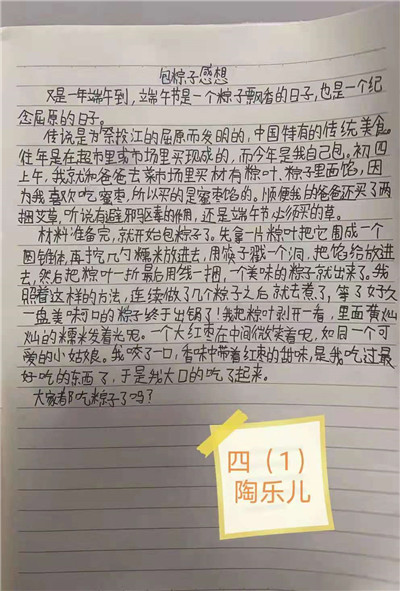 包粽子感想
又是一年端午到，端午节是一个粽子飘香的日子，也是一个纪
念屈原的日子。
传说是为祭投江的屈原而发明的，中国特有的传统美食。
往年是在超市里市场里买现成的，而今年是我自己包。初四
上午，我就和爸爸去菜市场里买材有粽叶，粽子里面馅，因
为我喜欢吃蜜枣，所以买的是蜜枣馅的。顺便我的爸爸还买了两
捆艾草，听说有辟邪驱毒的作用，还是端午节必须买的草。
材料准备完，就开始包粽子了。先拿一片粽叶把它围成一个
圆锥体，再扌几勺糯米放进去，用筷子戳一个洞，把馅给放进
去，然后把粽叶一折最后用线一捆，一个美味的粽子就出来了。我
照着这样的方法，连续做了几个粽子之后就去煮了，等了好久
一盘美味可口的粽子终于出锅了！我把粽叶剥开一看，里面黄灿
灿的糯米发着光呢。一个大红枣在中间微笑着呢，如同一个可
爱的小姑娘。我咬了一口，香味中带着红枣的甜味，是我吃过最
好吃的东西了，于是我大口的吃了起来。
大家都吃粽子了吗？
四（1）
陶乐儿